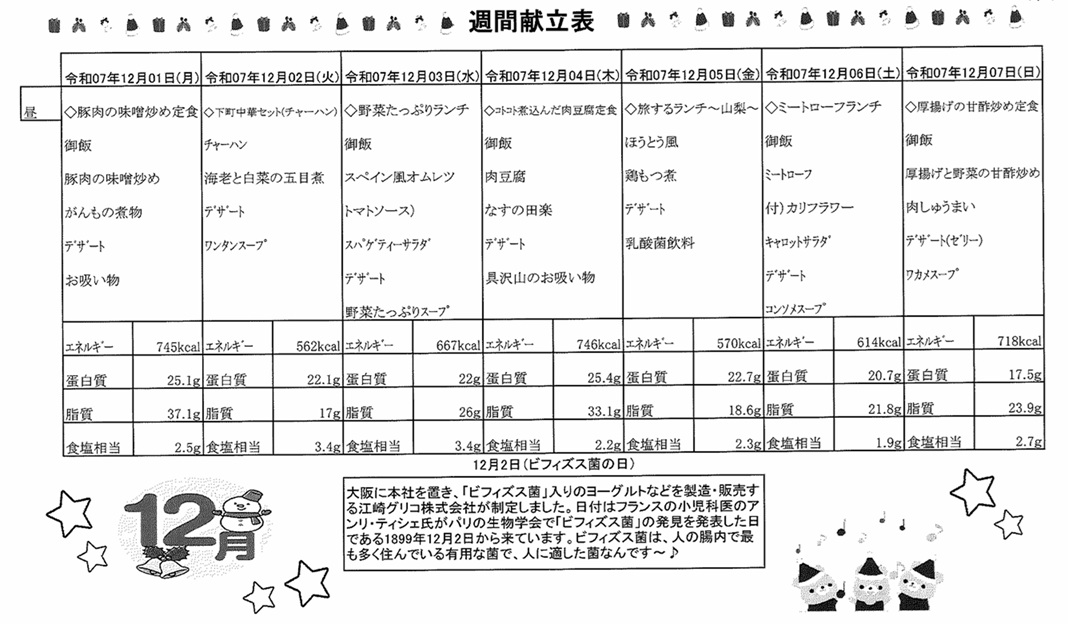 週間献立表
令和07年12月01日(月) 令和07年12月02日(火) 令和07年12月03日(水) 令和07年12月04日(木) 令和07年12月05日(金) 令和07年12月06日(土) 令和07年12月07日(日)
昼
◇豚肉の味噌炒め定食
御飯
豚肉の味噌炒め
がんもの煮物
ﾃﾞｻﾞｰﾄ
お吸い物
◇下町中華セット(チャーハン)
ﾁｬｰﾊﾝ
海老と白菜の五目煮
ﾃﾞｻﾞｰﾄ
ﾜﾝﾀﾝｽｰﾌﾟ
◇野菜たっぷりランチ
御飯
スペイン風オムレツ
トマトソース)
ｽﾊﾟｹﾞﾃｨｰｻﾗﾀﾞ
ﾃﾞｻﾞｰﾄ
野菜たっぷりｽｰﾌﾟ
◇ｺﾄｺﾄ煮込んだ肉豆腐定食
御飯
肉豆腐
なすの田楽
ﾃﾞｻﾞｰﾄ
具沢山のお吸い物
◇旅するランチ～山梨～
ほうとう風
鶏もつ煮
ﾃﾞｻﾞｰﾄ
乳酸菌飲料
◇ミートローフランチ
御飯
ﾐｰﾄﾛｰﾌ
付)カリフラワー
ｷｬﾛｯﾄｻﾗﾀﾞ
ﾃﾞｻﾞｰﾄ
ｺﾝｿﾒｽｰﾌﾟ
◇厚揚げの甘酢炒め定食
御飯
厚揚げと野菜の甘酢炒め
肉しゅうまい
ﾃﾞｻﾞｰﾄ(ｾﾞﾘｰ)
ﾜｶﾒｽｰﾌﾟ
ｴﾈﾙｷﾞｰ 745kcal ｴﾈﾙｷﾞｰ 562kcal ｴﾈﾙｷﾞｰ 667kcal ｴﾈﾙｷﾞｰ 746kcal ｴﾈﾙｷﾞｰ 570kcal ｴﾈﾙｷﾞｰ 614kcal ｴﾈﾙｷﾞｰ 718kcal
蛋白質 25.1g 蛋白質 22.1g 蛋白質 22g 蛋白質 25.4g 蛋白質 22.7g 蛋白質 20.7g 蛋白質 17.5g
脂質 37.1g 脂質 17g 脂質 26g 脂質 33.1g 脂質 18.6g 脂質 21.8g 脂質 23.9g
食塩相当 2.5g 食塩相当 3.4g 食塩相当 3.4g 食塩相当 2.2g 食塩相当 2.3g 食塩相当 1.9g 食塩相当 2.7g
12月2日(ビフィズス菌の日)
大阪に本社を置き、「ビフィズス菌」入りのヨーグルトなどを製造・販売す
る江崎グリコ株式会社が制定しました。日付はフランスの小児科医のア
ンリ・ティシェ氏がパリの生物学会で「ビフィズス菌」の発見を発表した日
である1899年12月2日から来ています。ビフィズス菌は、人の腸内で最
も多く住んでいる有用な菌で、人に適した菌なんです～♪
12月